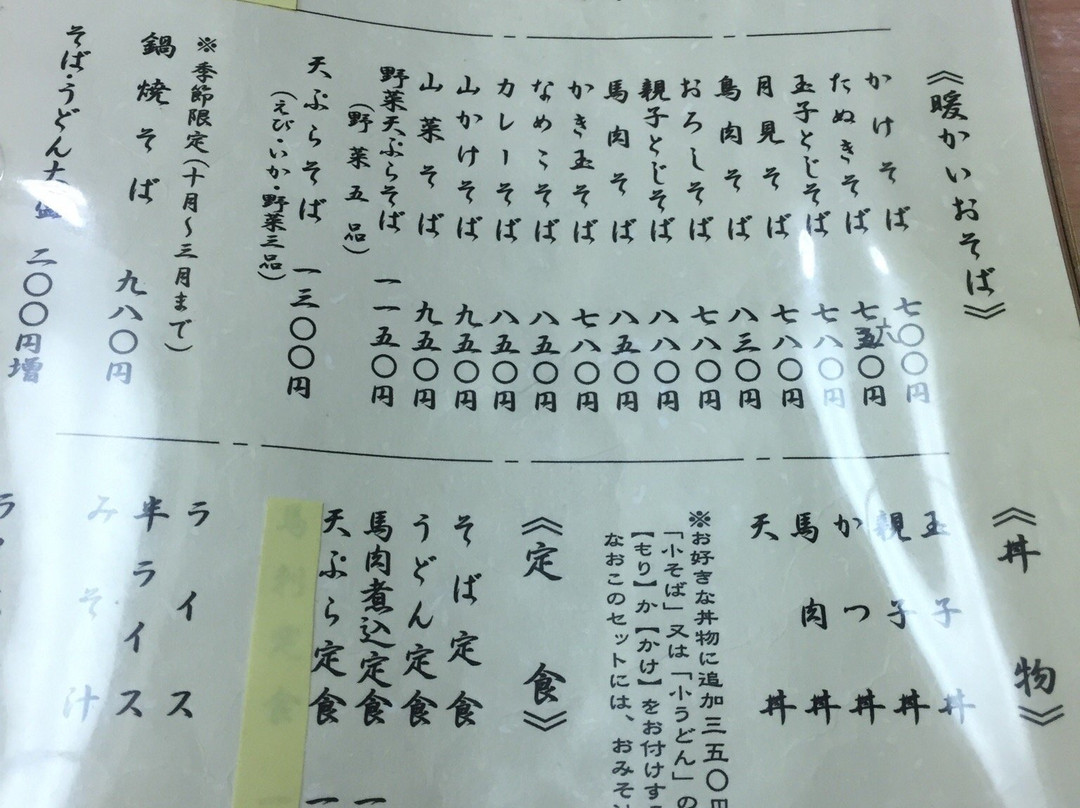 《暖かいおそば》
かけそば 七〇〇円
たぬきそば 七六〇円
玉子とじそば 七八〇円
月見そば 七八〇円
鳥肉そば 八三〇円
おろしそば 七八〇円
親子とじそば 八八〇円
馬肉そば 八五〇円
かき玉そば 七八〇円
なめこそば 八五〇円
カレーそば 八五〇円
山かけそば 九五〇円
山菜そば 九五〇円
野菜天ぷらそば 一一五〇円
(野菜五品)
天ぷらそば 一三〇〇円
(えび・いか・野菜三品)
※季節限定(十月〜三月まで)
鍋焼そば 九八〇円
そば・うどん大盛 二〇〇円増
《丼物》
玉子丼
親子丼
かつ丼
馬肉丼
天丼
※お好きな丼物に追加三五〇円
「小そば」又は「小うどん」の
【もり】か【かけ】をお付けする
なおこのセットには、おみそ
《定食》
そば定食
うどん定食
馬肉煮込定食 一
天ぷら定食 一
ライス
半ライス
みそ汁